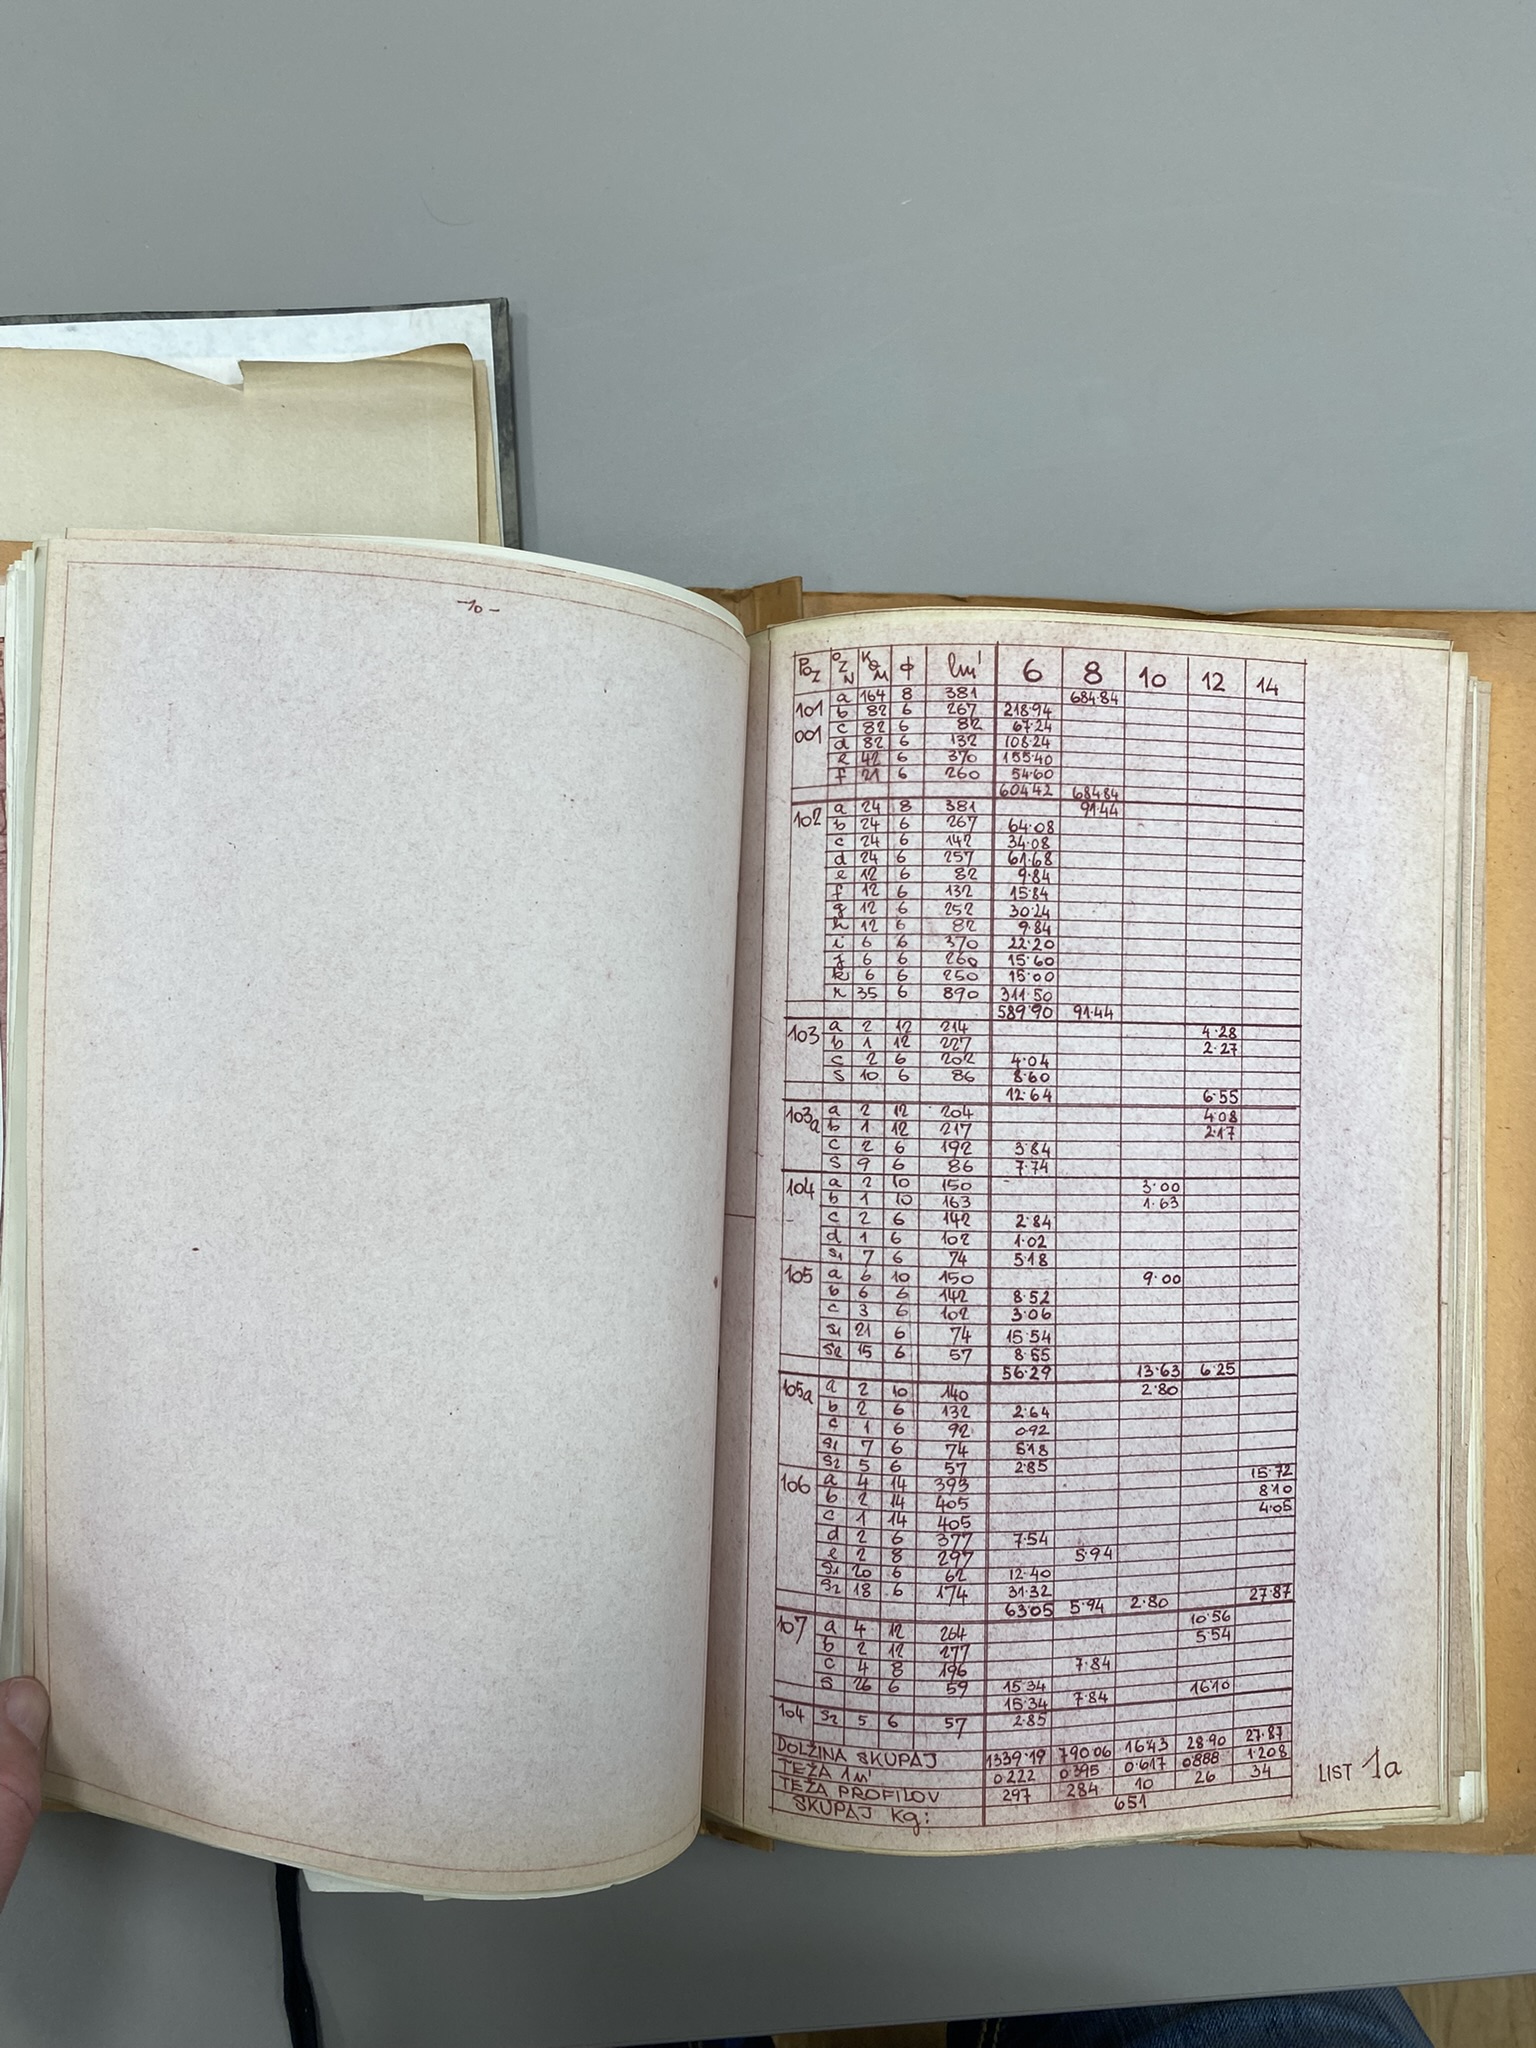 -10-
POZ OZN KOM ϕ lm' 6 8 10 12 14
101 a 164 8 381 684·84
001 b 82 6 267 218·94
c 82 6 82 67·24
d 82 6 132 108·24
e 42 6 370 155·40
f 21 6 260 54·60
604·42 684·84
102 a 24 8 381 91·44
b 24 6 267 64·08
c 24 6 142 34·08
d 24 6 257 61·68
e 12 6 82 9·84
f 12 6 132 15·84
g 12 6 252 30·24
h 12 6 82 9·84
i 6 6 370 22·20
j 6 6 260 15·60
k 6 6 250 15·00
r 35 6 890 311·50
589·90 91·44
103 a 2 12 214 4·28
b 1 12 227 2·27
c 2 6 202 4·04
s 10 6 86 8·60
12·64 6·55
103a a 2 12 204 4·08
b 1 12 217 2·17
c 2 6 192 3·84
s 9 6 86 7·74
104 a 2 10 150 3·00
b 1 10 163 1·63
c 2 6 142 2·84
d 1 6 102 1·02
s1 7 6 74 5·18
105 a 6 10 150 9·00
b 6 6 142 8·52
c 3 6 102 3·06
s1 21 6 74 15·54
s2 15 6 57 8·55
56·29 13·63 6·25
105a a 2 10 140 2·80
b 2 6 132 2·64
c 1 6 92 0·92
s1 7 6 74 5·18
s2 5 6 57 2·85
106 a 4 14 393 15·72
b 2 14 405 8·10
c 1 14 405 4·05
d 2 6 377 7·54
e 2 8 297 5·94
s1 20 6 62 12·40
s2 18 6 174 31·32
63·05 5·94 2·80 27·87
107 a 4 12 264 10·56
b 2 12 277 5·54
c 4 8 196 7·84
s 26 6 59 15·34
15·34 7·84 16·10
104 s2 5 6 57 2·85
DOLŽINA SKUPAJ 1339·19 790·06 16·43 28·90 27·87
TEŽA 1m' 0·222 0·395 0·617 0·888 1·208
TEŽA PROFILOV 297 284 10 26 34
SKUPAJ kg: 651
LIST 1a